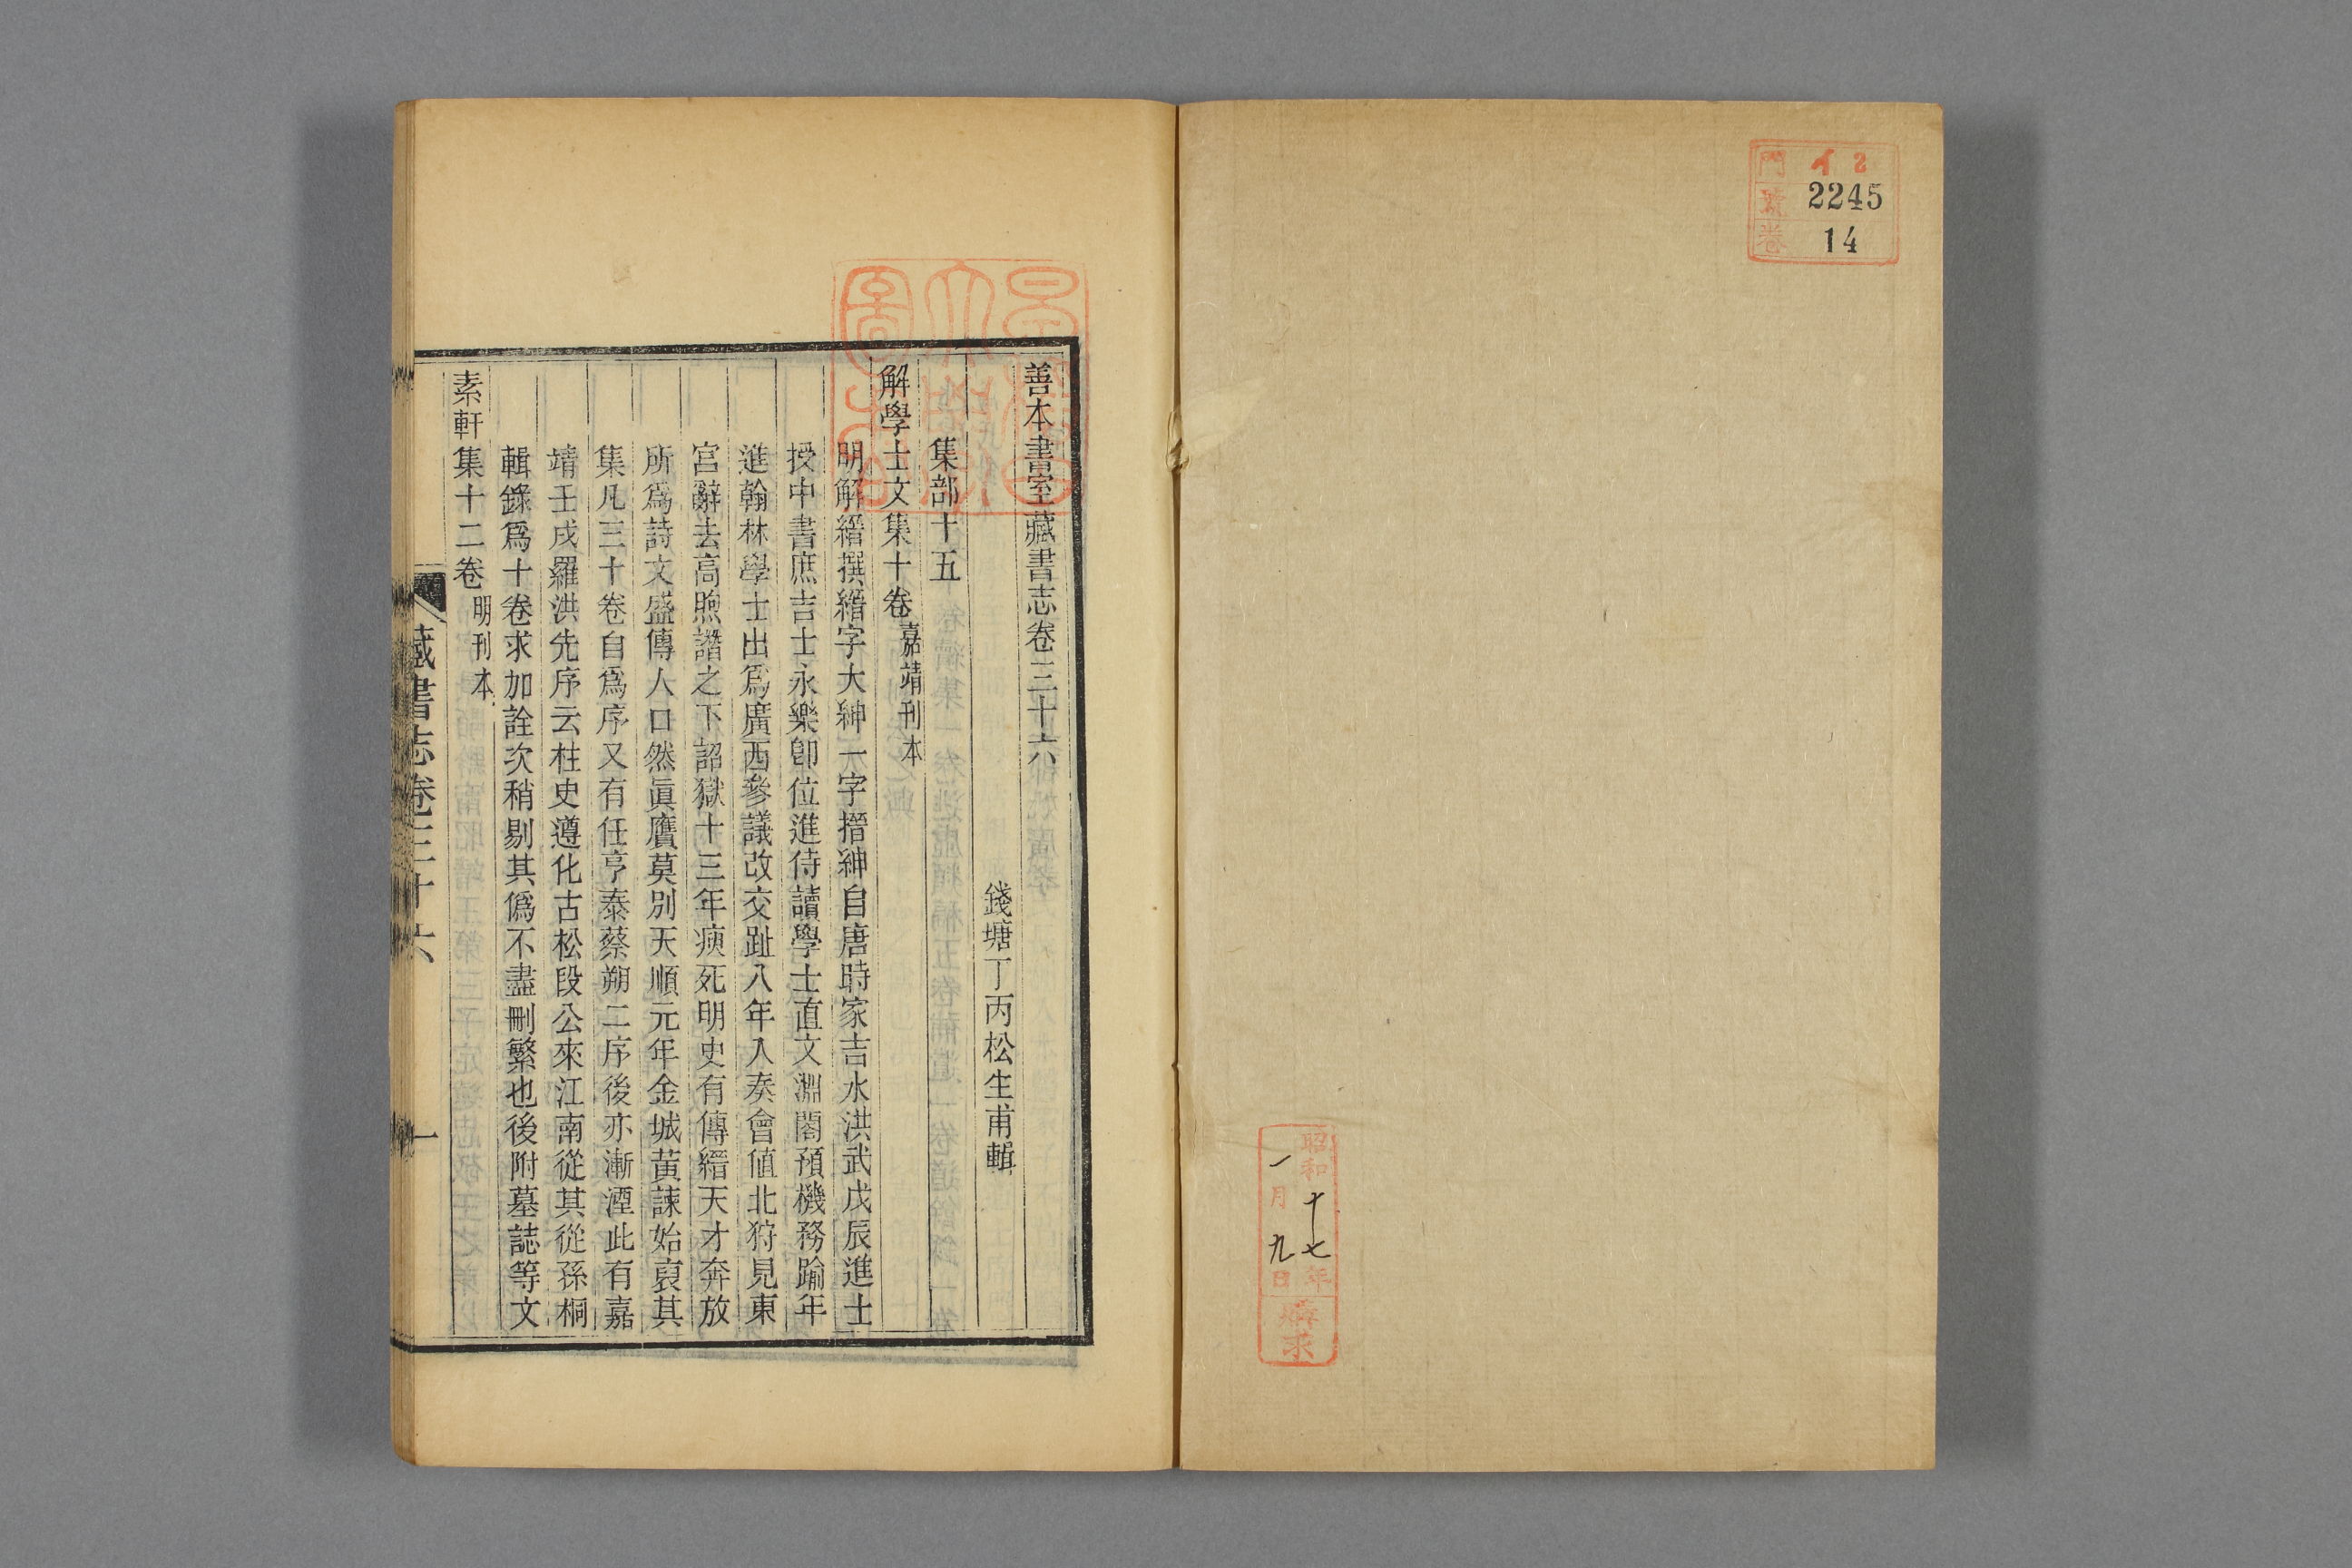 門 イ 2
號 2245
卷 14
昭和十七年
一月九日
購求
善本書室藏書志卷三十六
錢塘丁丙松生甫輯
集部十五
解學士文集十卷 嘉靖刊本
明解縉撰縉字大紳一字搢紳自唐時家吉水洪武戊辰進士
授中書庶吉士永樂卽位進侍讀學士直文淵閣預機務踰年
進翰林學士出爲廣西參議改交趾八年入奏會値北狩見東
宮辭去高煦譖之下詔獄十三年瘐死明史有傳縉天才奔放
所爲詩文盛傳人口然眞贗莫別天順元年金城黃諫始裒其
集凡三十卷自爲序又有任亨泰蔡朔二序後亦漸湮此有嘉
靖壬戌羅洪先序云柱史遵化古松段公來江南從其從孫桐
輯錄爲十卷求加詮次稍剔其僞不盡刪繁也後附墓誌等文
素軒集十二卷 明刊本
藏書志卷三十六
一